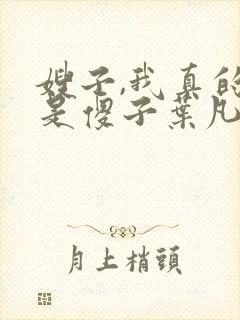 嫂子,我真的
是傻子葉凡
月上梢頭